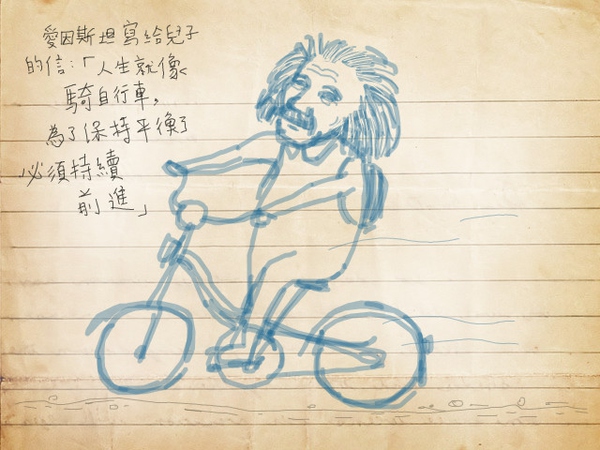 愛因斯坦寫給兒子
的信：「人生就像
騎自行車，
為了保持平衡
必須持續
前進」